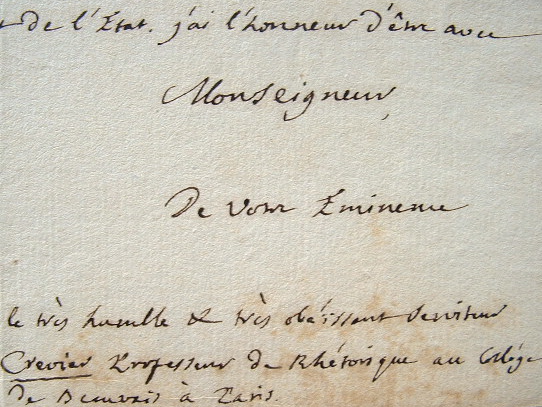 de l'Etat. j'ai l'honneur d'être avec
Monseigneur,
De votre Eminence
le très humble & très obéissant serviteur
Crevier Professeur de Rhétorique au Collége
de Beauvais à Paris.